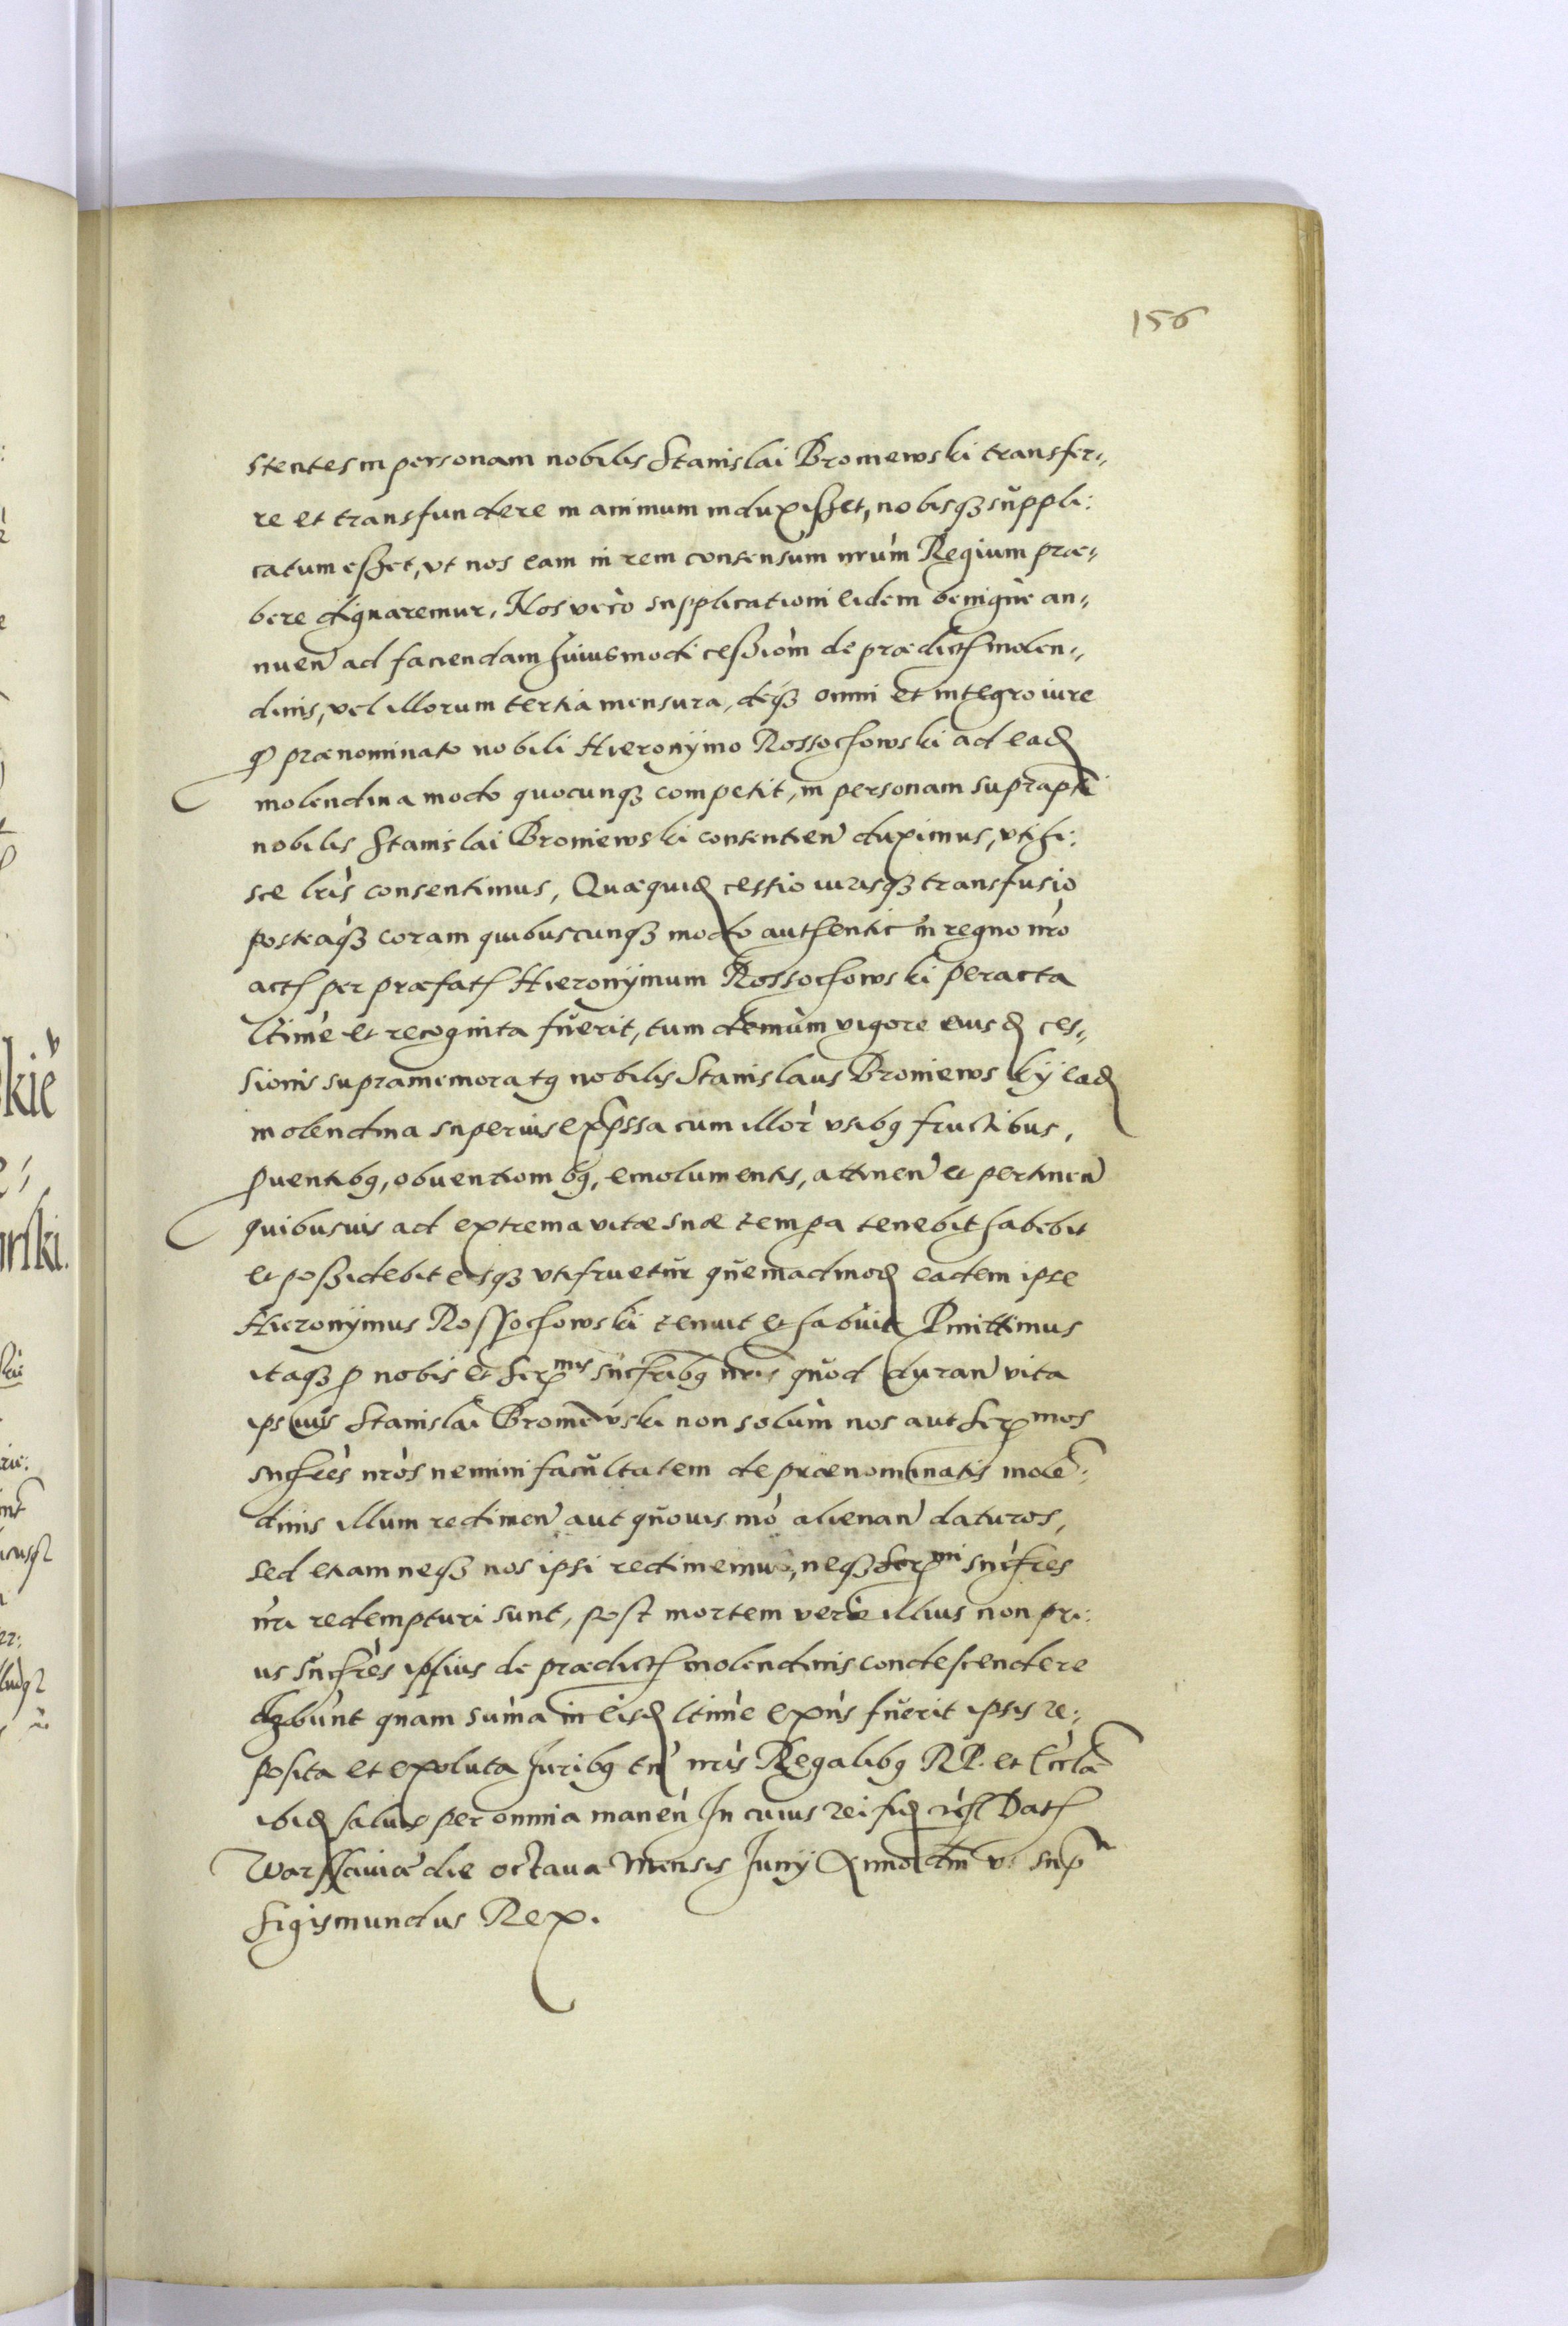 156
stentes in personam nobilis Stanislai Broniewski transfer⸗
re et transfundere in animum induxißet, nobisq₃ suppli:
catum eßet, vt nos eam in rem consensum nrum Regium præ⸗
bere dignaremur, Nos vero supplicationi eidem benigne an⸗
nuen ad faciendam huiusmodi ceßiom de prædict molen⸗
dinis, vel illorum tertia mensura, deq₃ omni et integro iure
qd prænominato nobili Hieronymo Rossochowski ad ead
molendina modo quocunq₃ competit, in personam suprapti
nobilis Stanislai Broniewski consentien duximus, vti hi:
sce lris consentimus, Quæquid cessio iurisq₃ transfusio
posteaq₃ coram quibuscunq₃ modo authentic in regno nro
act per præfat Hieronymum Rossochowski peracta
ltime et recognita fuerit, tum demum vigore eiusd ces⸗
sionis supramemoratg nobilis Stanislaus Broniewskÿ ead
molendina superius expssa cum illor vsibg fructibus,
pventibg, obventionibg, emolumentis, attinen et pertinen
quibusuis ad extrema vitæ suæ tempa tenebit habebit
et poßidebit eisq₃ vtifruetur quemadmod eadem ipse
Hieronymus Rossochowski tenuit et habuit Pmittimus
itaq₃ p nobis et Serᵐⁱˢ sucfribg nris quod duran vita
ipsius Stanislai Broniewski non solum nos aut Serᵐᵒˢ
sucfres nros nemini facultatem de prænominatis mole:
dinis illum redimen aut quouis mo alienan daturos,
sed etiam neq₃ nos ipsi redimemus, neq₃ Serᵐⁱ sucfres
nri redempturi sunt, post mortem vero illius non pri:
us sucfres ipsius de prædict molendinis condescendere
debunt quam suma in eisd ltime expns fuerit ipsis re:
posita et exoluta Juribg tn nris Regalibg RP. et Eccla
ibid saluis per omnia manen In cuius rei fid Dat
Warssauiæ die octaua Mensis Junÿ Anno dni vt supr
Sigismundus Rex.